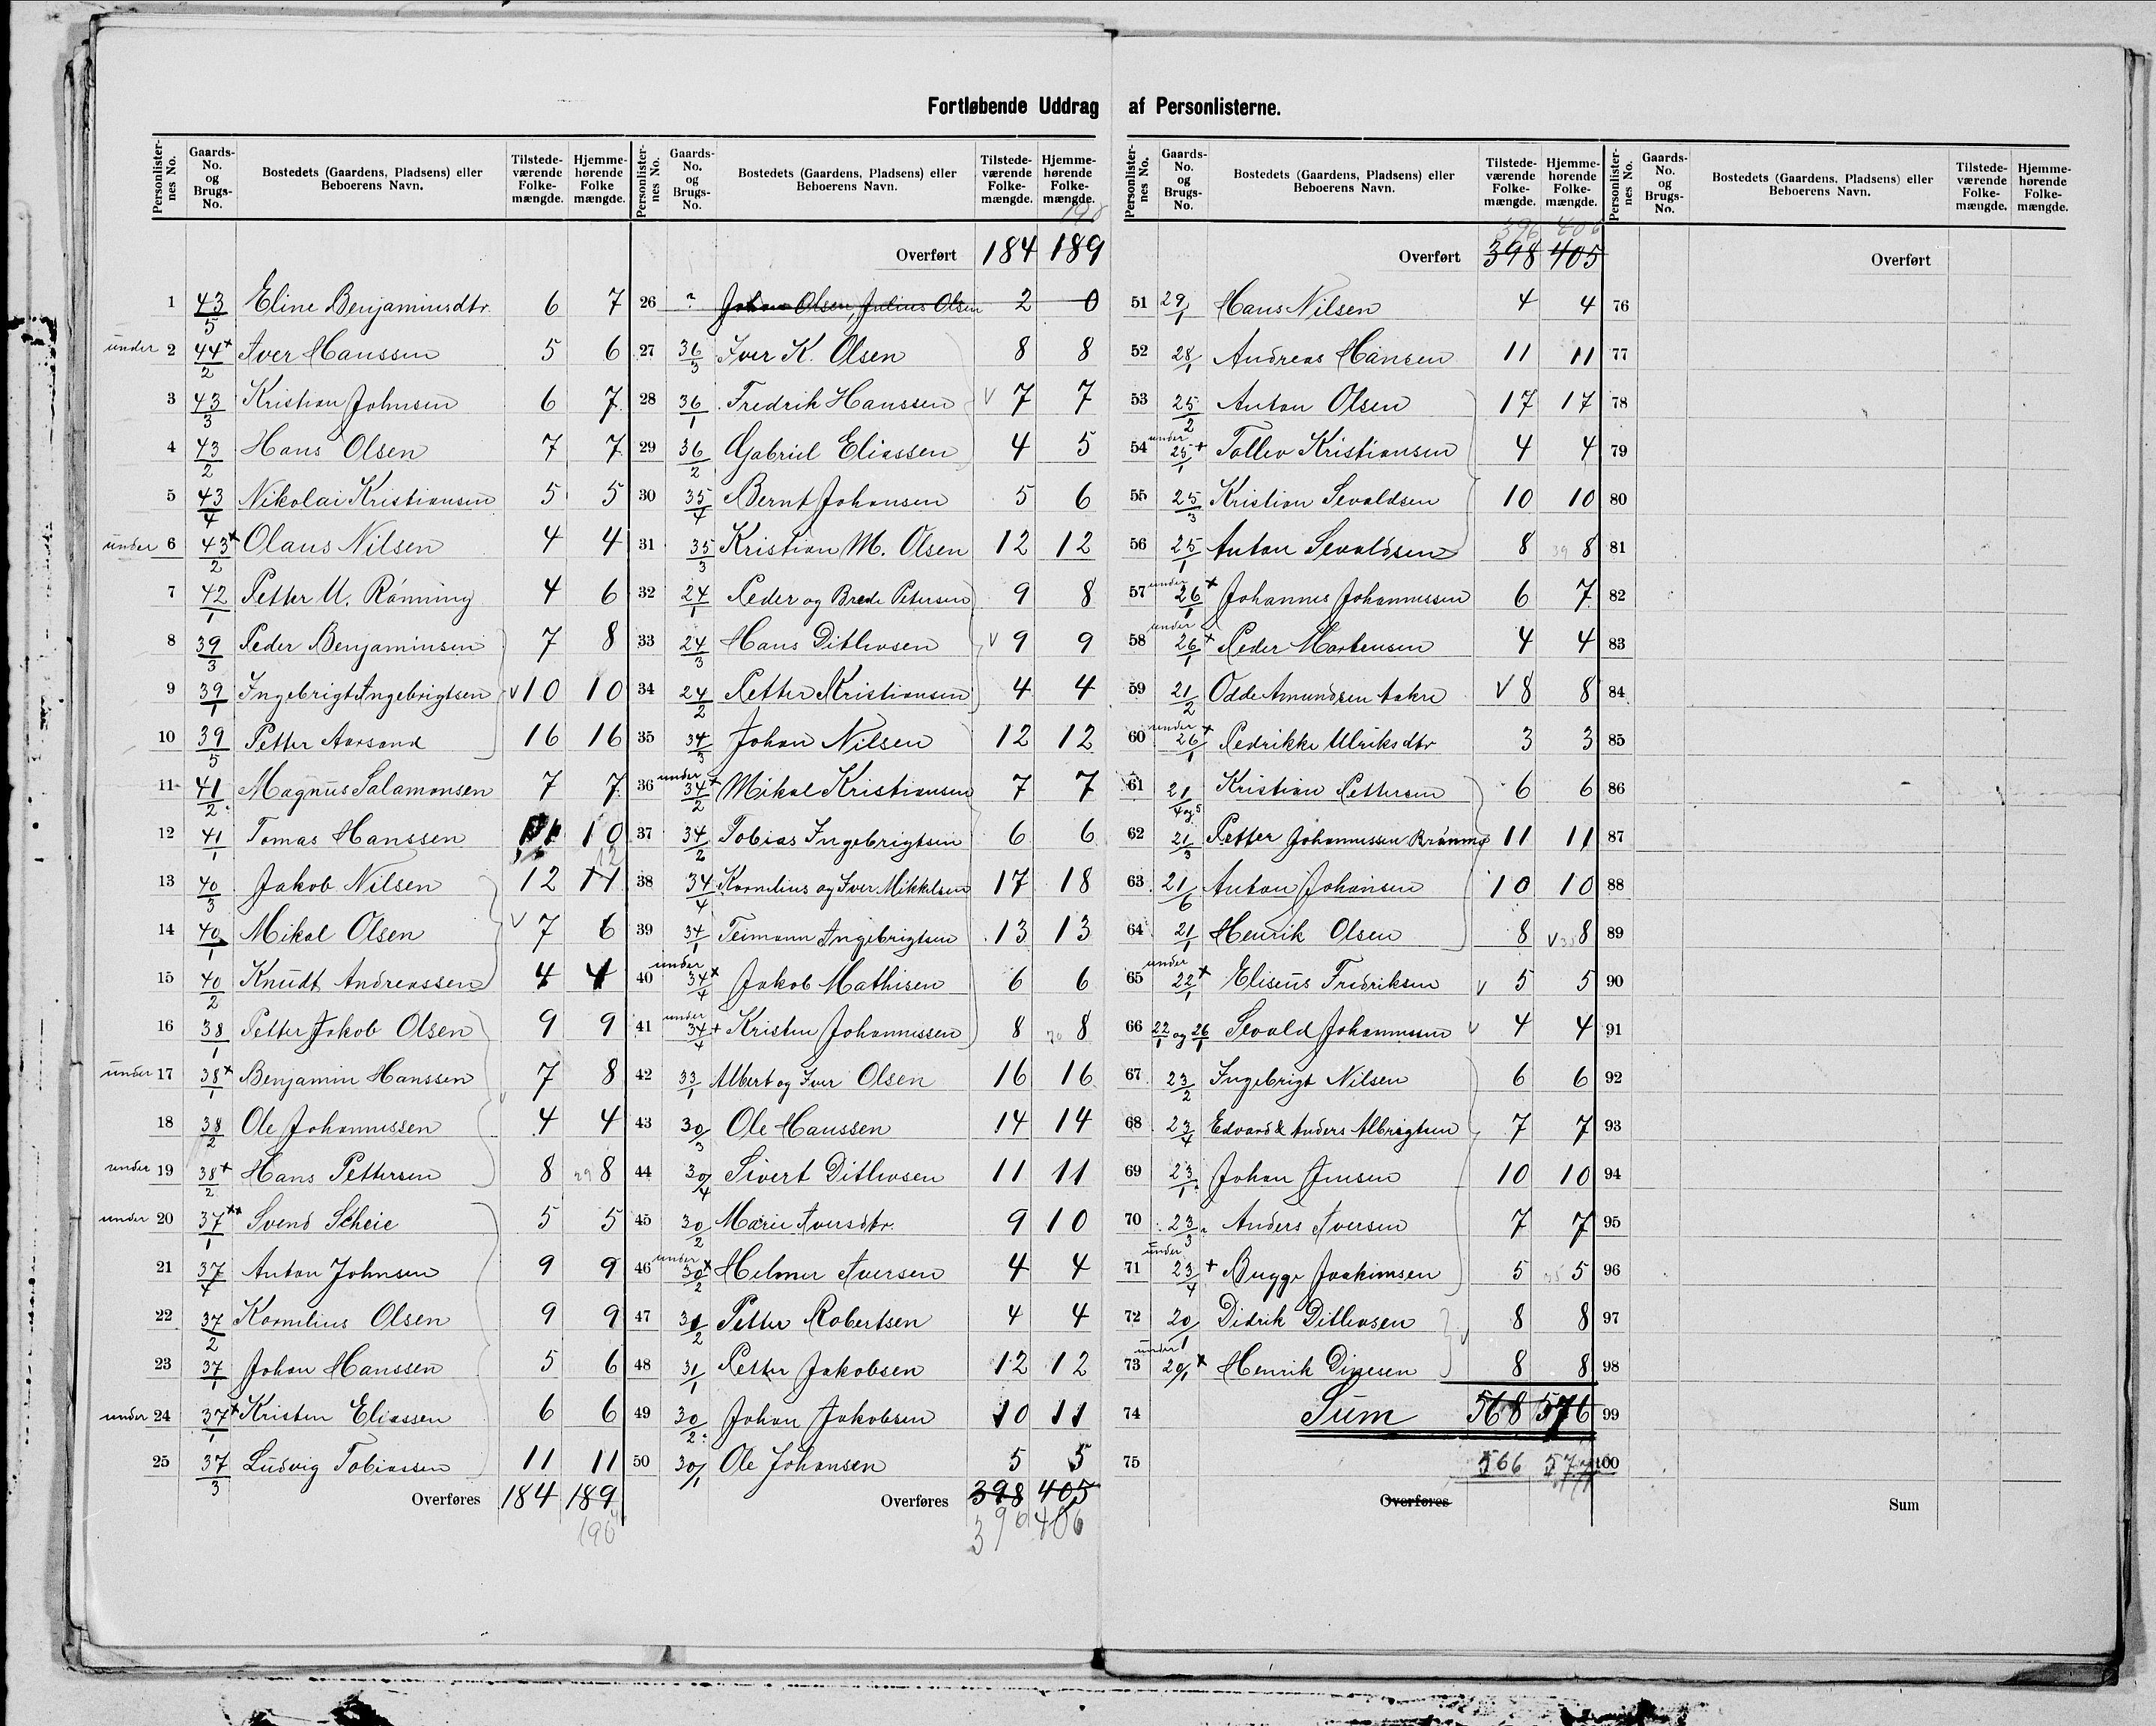 Fortløbende Uddrag af Personlisterne.
Personlisternes No. Gaards-No. og Brugs-No. Bostedets (Gaardens, Pladsens) eller Beboerens Navn. Tilstedeværende Folkemængde. Hjemmehørende Folkemængde.
1 43/5 Eline Benjaminsdtr. 6 7
under 2 44/2 + Iver Hanssen 5 6
3 43/3 Kristian Johnsen 6 7
4 43/2 Hans Olsen 7 7
5 43/4 Nikolai Kristiansen 5 5
under 6 43/2 + Olaus Nilsen 4 4
7 42/1 Petter U. Rönning 4 6
8 39/3 Peder Benjaminsen 7 8
9 39/1 Ingebrigt Ingebrigtsen v 10 10
10 39/5 Petter Aarsand 16 16
11 41/2 Magnus Salamonsen 7 7
12 41/1 Tomas Hanssen 10
13 40/3 Jakob Nilsen 12 11 12
14 40/1 Mikal Olsen v 7 6
15 40/2 Knudt Andreassen 4 4
16 38/1 Petter Jakob Olsen 9 9
under 17 38/1 + Benjamin Hanssen 7 8
18 38/2 Ole Johannessen 4 4
under 19 38/2 + Hans Pettersen 8 29 8
under 20 37/1 ++ Svend Scheie 5 5
21 37/4 Anton Johnsen 9 9
22 37/2 Kornelius Olsen 9 9
23 37/1 Johan Hanssen 5 6
under 24 37/1 + Kristen Eliassen 6 6
25 37/3 Ludvig Tobiassen 11 11
Overføres 184 189
190
190
Overført 184 189
26 ? Johan Olsen, Julius Olsen 2 0
27 36/3 Iver K. Olsen 8 8
28 36/1 Fredrik Hanssen v 7 7
29 36/2 Gabriel Eliassen 4 5
30 35/4 Bernt Johansen 5 6
31 35/3 Kristian M. Olsen 12 12
32 24/1 Peder og Brede Petersen 9 8
33 24/3 Hans Ditlevsen v 9 9
34 24/2 Petter Kristiansen 4 4
35 34/3 Johan Nilsen 12 12
36 under 34/2 + Mikal Kristiansen 7 7
37 34/2 Tobias Ingebrigtsen 6 6
38 34/4 Kornelius og Iver Mikkelsen 17 18
39 34/1 Teimann Ingebrigtsen 13 13
40 under 34/4 + Jakob Mathisen 6 6
41 under 34/4 + Kristen Johannessen 8 70 8
42 33/1 Albert og Iver Olsen 16 16
43 30/3 Ole Hanssen 14 14
44 30/4 Sivert Ditlevsen 11 11
45 30/2 Marie Iversdtr. 9 10
46 under 30/2 + Helmer Iversen 4 4
47 31/2 Petter Robertsen 4 4
48 31/1 Petter Jakobsen 12 12
49 30/2 Johan Jakobsen 10 11
50 30/1 Ole Johansen 5 5
Overføres 398 405
396 406
396 406
Overført 398 405
51 29/1 Hans Nilsen 4 4
52 28/1 Andreas Hansen 11 11
53 25/2 Anton Olsen 17 17
54 under 25/1 + Tollev Kristiansen 4 4
55 25/3 Kristian Sevaldsen 10 10
56 25/1 Anton Sevaldsen 8 39 8
57 under 26/1 + Johannes Johannessen 6 7
58 under 26/1 + Peder Mortensen 4 4
59 21/2 Odde Amundsen Aakre v 8 8
60 under 26/1 + Pedrikke Ulriksdtr 3 3
61 21/4 og 5 Kristian Pettersen 6 6
62 21/3 Petter Johannessen 11 11
63 21/6 Anton Johansen 10 10
64 21/1 Henrik Olsen 8 v 8
65 under 22/1 + Eliseus Fredriksen v 5 5
66 22/1 og 26/1 Sevald Johannessen v 4 4
67 23/2 Ingebrigt Nilsen 6 6
68 23/4 Edvard & Anders Albrigtsen 7 7
69 23/1 Johan Jensen 10 10
70 23/3 Anders Iversen 7 7
71 under 23/4 + Bugge Joakimsen 5 35 5
72 20/1 Didrik Ditlevsen 8 8
73 under 20/1 + Henrik Dinesen 8 8
74 Sum 568 576
75 566 577
Overføres
Overført
76
77
78
79
80
81
82
83
84
85
86
87
88
89
90
91
92
93
94
95
96
97
98
99
100
Sum